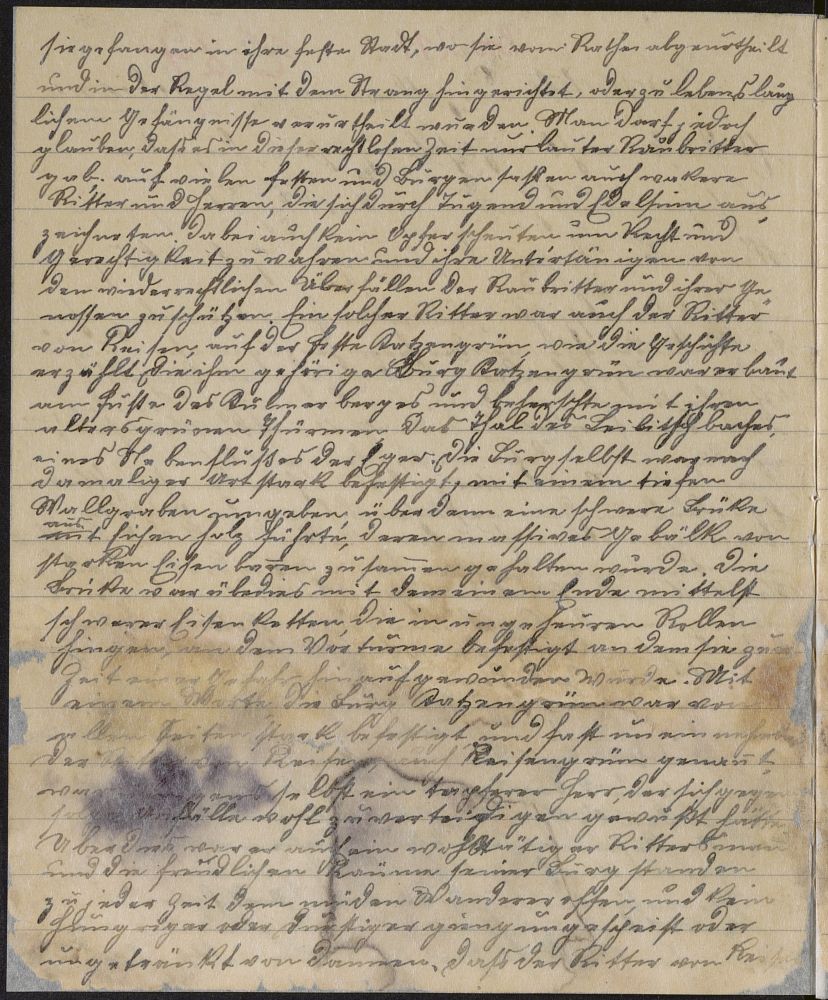 sie gefangen in ihre feste Stadt, wo sie vom Rathe abgeurtheilt
und in der Regel mit dem Strang hingerichtet, oder zu lebensläng
lichem Gefängnisse verurtheilt wurden. Man darf jedoch
glauben, dass es in dieser rechtlosen Zeit nur lauter Raubritter
gab. auf vielen festen und Burgen saßen auch wakere
Ritter und Herren, die sich durch Tugend und Edelsinn aus
zeichneten, dabei auch kein Opfer scheuten um Recht und
Gerechtigkeit zu wahren und ihre Untertänigen von
den wiederrechtlichen Überfällen der Raubritter und ihrer Ge
nossen zu schützen. Ein solcher Ritter war auch der Ritter
von Reisen, auf der feste Katzengrün, wie die Geschichte
erzählt die ihm gehörige Burg Katzengrün war erbaut
am fuße des Kulmer berges und beherschte mit ihren
altersgrünen Thürmen das Thal des Leibitschbaches,
eines Nebenflußes der Eger. Die Burg selbst war nach
damaliger art stark befestigt, mit einem tiefen
Wallgraben umgeben über dem eine schwere Brüke
aus
mit Eichen holz führte, deren massives Gebälk von
starken Eisen baren zusamen gehalten wurde. Die
Brüke war überdies mit dem einem Ende mittelst
schwerer Eisenketten die in ungeheuren Rollen
hingen, an dem Vorturme befestigt an dem sie zur
Zeit einer Gefahr hinaufgewunden wurde. Mit
einem Worte die Burg Katzengrün war von
allen Seiten stark befestigt und fast uneinnehmbar
der Reisen, auch Reisengrün genant
war selbst ein tapferer Herr, der sich gegen
anfälle wohl zu verteidigen gewußt hätte
Überdies war er auch ein wohltätiger Rittersman
und die freudlichen Räume seiner Burg standen
zu jeder Zeit dem müden Wanderer offen, und kein
Hungriger oder Durstiger gieng ungespeist oder
ungetränkt von dannen. Dass der Ritter von Reisen